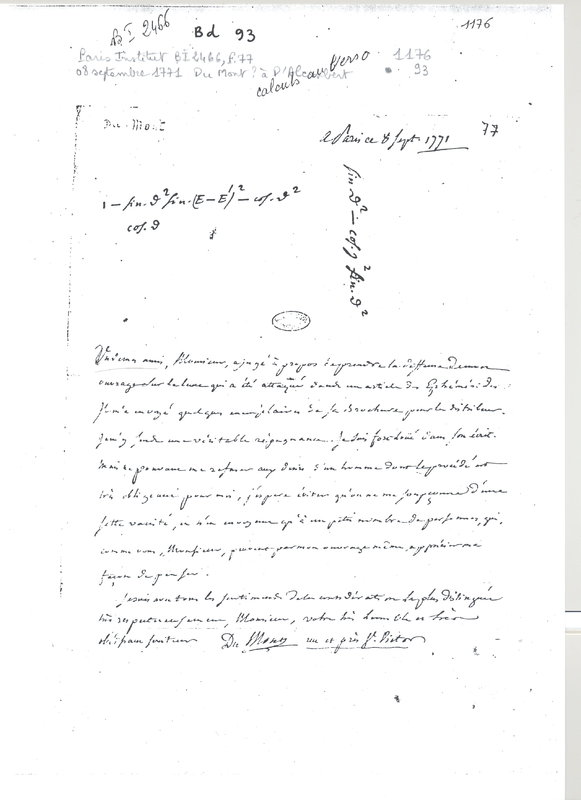 Bd 93
1176
Bī 2466
Paris Institut BĪ 2466, f.77
1176
08 septembre 1771 Du Mont ? à D'Alembert
93
calculs au verso
Du Mont
à Paris ce 8 Sept. 1771
77
1 – sin. ϑ² sin. (E – E')² – cos. ϑ²
cos. ϑ
sin ϑ² – cos. ϑ² sin. ϑ²
Un de mes amis, Monsieur, a jugé à propos de prendre la deffense de mon
ouvrage sur la lune qui a été attaqué dans un article des Ephémérides
Il m'a envoyé quelques exemplaires de sa Brochure pour les distribuer.
une véritable répugnance. Je suis fort loué dans son écrit.
mais ne pouvant me refuser aux désirs d'un homme dont le procédé est
très obligeant pour moi, j'espère éviter qu'on ne me soupçonne d'une
sotte vanité, en n'en envoyant qu'à un petit nombre de personnes, qui,
comme vous, Monsieur, peuvent par mon ouvrage même apprécier ma
façon de penser.
Je suis avec tous les sentiments de la considération la plus distinguée
très respectueusement, Monsieur, votre très humble et très
obéissant serviteur Du Mont rue et près St. Victor